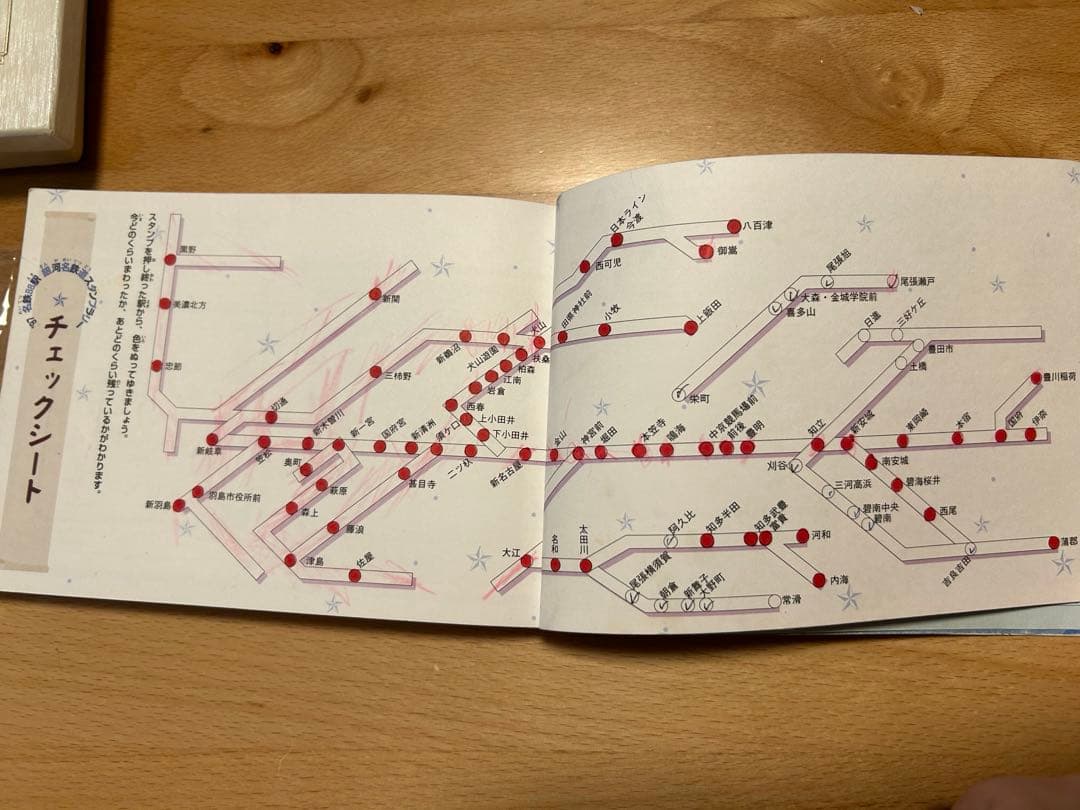 名鉄88駅 銀河名鉄スタンプラリー
チェックシート
スタンプを押し終った駅から、色をぬってゆきましょう。
今どのくらいまわったか、あとどのくらい残っているかがわかります。
黒野
美濃北方
忠節
新岐阜
切通
新関
三柿野
新鵜沼
犬山遊園
犬山
扶桑
柏森
江南
岩倉
西春
上小田井
下小田井
笠松
新木曽川
新一宮
国府宮
新清洲
須ケ口
二ツ杁
新名古屋
奥町
萩原
森上
藤浪
甚目寺
新羽島
羽島市役所前
津島
佐屋
大江
日本ライン
今渡
八百津
御嵩
西可児
田県神社前
小牧
上飯田
尾張旭
尾張瀬戸
大森・金城学院前
喜多山
栄町
日進
三好ケ丘
豊田市
土橋
豊川稲荷
金山
神宮前
堀田
本笠寺
鳴海
中京競馬場前
前後
豊明
知立
新安城
東岡崎
本宿
国府
伊奈
刈谷
南安城
三河高浜
碧海桜井
碧南中央
碧南
西尾
吉良吉田
蒲郡
名和
太田川
阿久比
知多半田
知多武豊
富貴
河和
内海
尾張横須賀
朝倉
新舞子
大野町
常滑